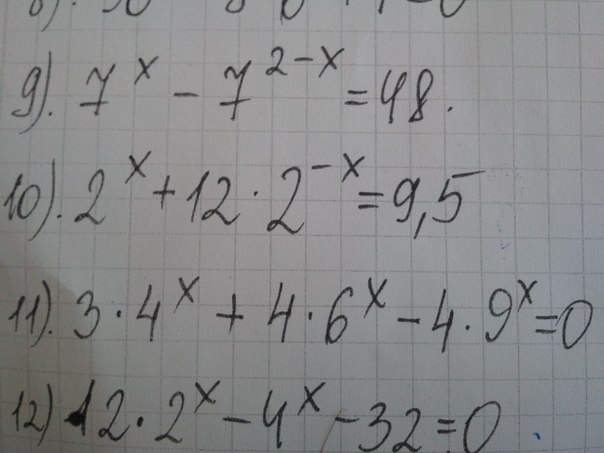 9). 7^x - 7^{2-x} = 48.
10). 2^x + 12 · 2^{-x} = 9,5
11). 3 · 4^x + 4 · 6^x - 4 · 9^x = 0
12) 12 · 2^x - 4^x - 32 = 0